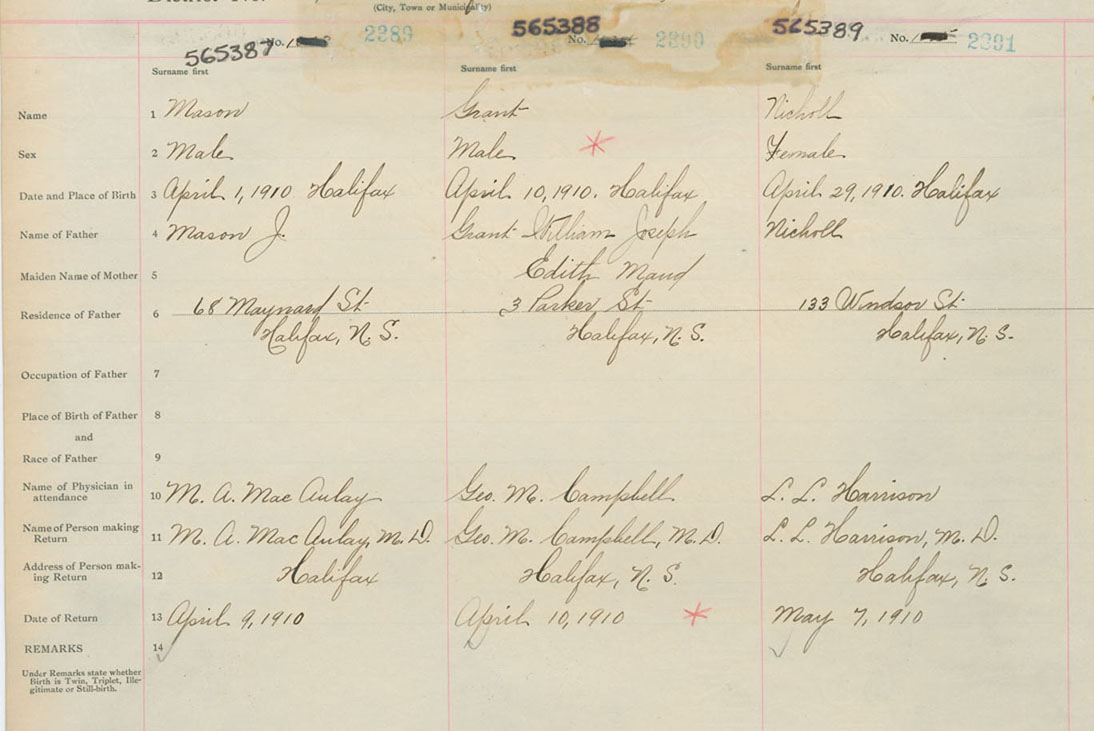 (City, Town or Municipality)
565387 No. 2289
565388 No. 2290
565389 No. 2291
Surname first Surname first Surname first
Name 1 Mason Grant Nicholl
Sex 2 Male Male Female
Date and Place of Birth 3 April 1, 1910 Halifax April 10, 1910. Halifax April 29, 1910. Halifax
Name of Father 4 Mason J. Grant William Joseph Nicholl
Maiden Name of Mother 5 Edith Maud
Residence of Father 6 68 Maynard St 3 Parker St 133 Windsor St
Halifax, N. S. Halifax, N. S. Halifax, N. S.
Occupation of Father 7
Place of Birth of Father 8
and
Race of Father 9
Name of Physician in
attendance 10 M. A. Mac Aulay Geo. M. Campbell L. L. Harrison
Name of Person making
Return 11 M. A. Mac Aulay, M.D. Geo. M. Campbell, M. D. L. L. Harrison, M. D.
Address of Person mak-
ing Return 12 Halifax Halifax, N. S. Halifax, N. S.
Date of Return 13 April 9, 1910 April 10, 1910 May 7, 1910
REMARKS 14
Under Remarks state whether
Birth is Twin, Triplet, Ille-
gitimate or Still-birth.